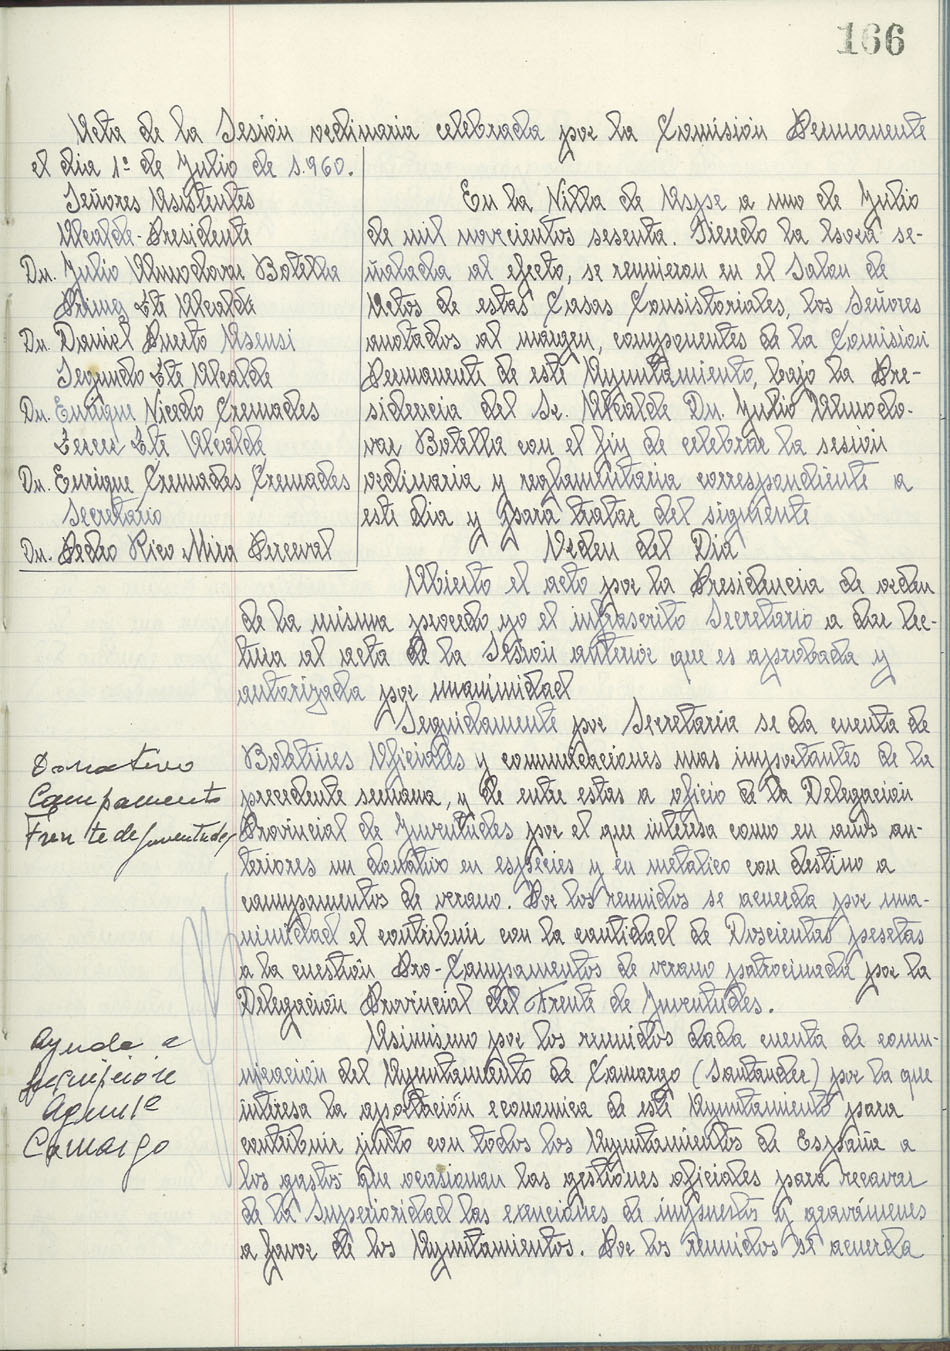 166
Acta de la Sesión ordinaria celebrada por la Comisión Permanente
el dia 1º de Julio de 1.960.
Señores Asistentes
Alcalde-Presidente
Dn. Julio Almodovar Botella
Primer Tte Alcalde
Dn. Daniel Puerto Asensi
Segundo Tte Alcalde
Dn. Enrique Nicedo Cremades
Tercer Tte Alcalde
Dn. Enrique Cremades Cremades
Secretario
Dn. Pedro Rico Mira Perceval
En la Villa de Aspe a uno de Julio
de mil novecientos sesenta. Siendo la hora se-
ñalada al efecto, se reunieron en el Salon de
Actos de estas Casas Consistoriales, los Señores
anotados al márgen, componentes de la Comisión
Permanente de este Ayuntamiento, bajo la Pre-
sidencia del Sr. Alcalde Dn. Julio Almodo-
var Botella con el fin de celebrar la sesión
ordinaria y reglamentaria correspondiente a
este dia y para tratar del siguiente
Orden del Dia
Abierto el acto por la Presidencia de orden
de la misma procedo yo el infrascrito Secretario a dar lec-
tura al acta de la Sesión anterior que es aprobada y
autorizada por unanimidad
Seguidamente por Secretaría se da cuenta de
Boletines Oficiales y comunicaciones mas importantes de la
Donativo
Campamento
Frente de Juventudes
precedente semana, y de entre estas a oficio de la Delegación
Provincial de Juventudes por el que interesa como en años an-
teriores un donativo en especies y en metalico con destino a
campamentos de verano. Por los reunidos se acuerda por una-
nimidad el contribuir con la cantidad de Doscientas pesetas
a la cuestión Pro-Campamentos de verano patrocinada por la
Delegación Provincial del Frente de Juventudes.
Ayuda a
Camargo
Asimismo por los reunidos dada cuenta de comu-
nicación del Ayuntamiento de Camargo (Santander) por la que
interesa la aportación economica de este Ayuntamiento para
contribuir junto con todos los Ayuntamientos de España a
los gastos que ocasionan las gestiones oficiales para recavar
de la Superioridad las exenciones de impuesto y gravámenes
a favor de los Ayuntamientos. Por los reunidos se acuerda